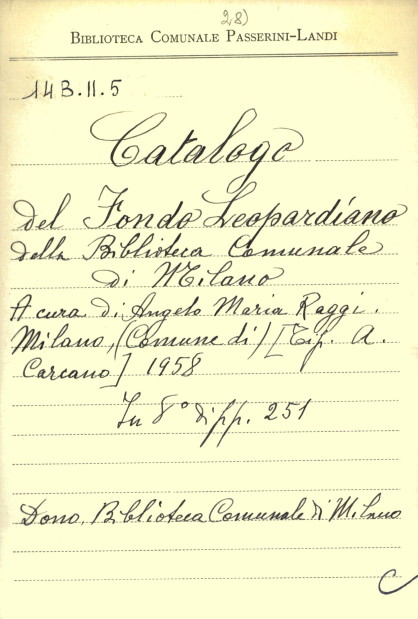 28)
BIBLIOTECA COMUNALE PASSERINI-LANDI
14B.II.5
Catalogo
del Fondo Leopardiano
della Biblioteca Comunale
di Milano
A cura di Angelo Maria Raggi.
Milano, (Comune di) [Tip. A.
Carcano] 1958
In 8° di pp. 251
Dono, Biblioteca Comunale di Milano
C